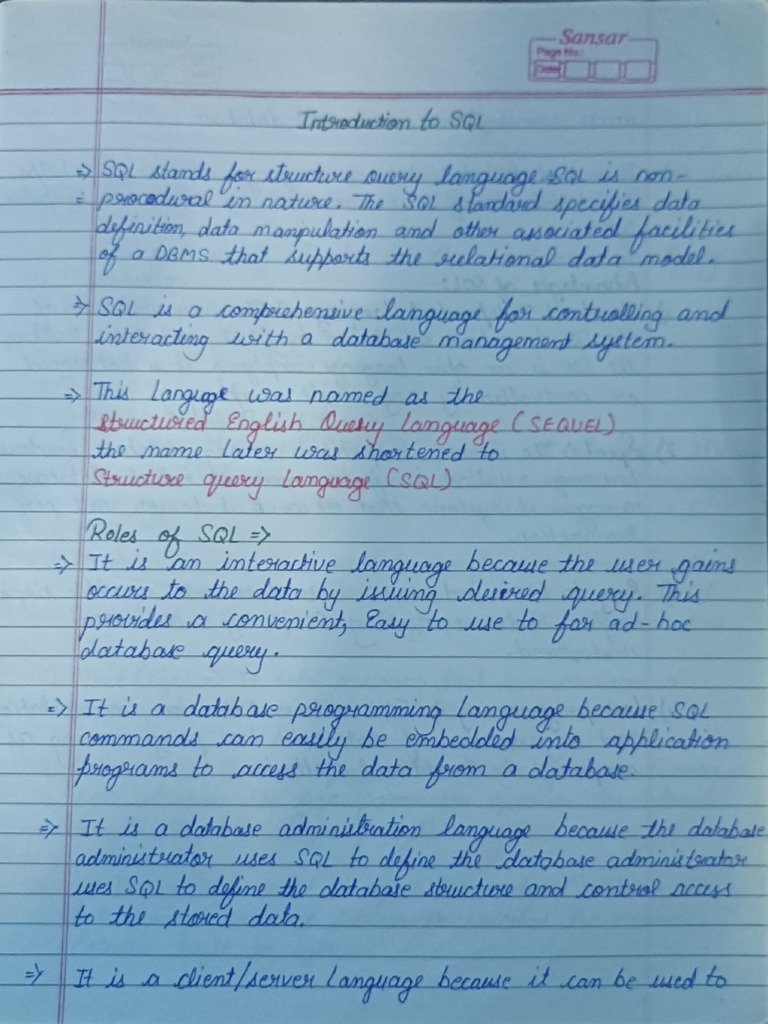 Sansar
Page No.:
Date
Introduction to SQL
⇒ SQL stands for structure query language SQL is non-
procedural in nature. The SQL standard specifies data
definition, data manipulation and other associated facilities
of a DBMS that supports the relational data model.
⇒ SQL is a comprehensive language for controlling and
interacting with a database management system.
⇒ This langage was named as the
Structured English Query Language (SEQUEL)
the name later was shortened to
Structure query Language (SQL)
Roles of SQL ⇒
⇒ It is an interactive language because the user gains
occurs to the data by issuing desired query. This
provides a convenient, Easy to use to for ad-hoc
database query.
⇒ It is a database programming Language because SQL
commands can easily be embedded into application
programs to access the data from a database.
⇒ It is a database administration language because the database
administrator uses SQL to define the database administrator
uses SQL to define the database structure and control access
to the stored data.
⇒ It is a client/server Language because it can be used to